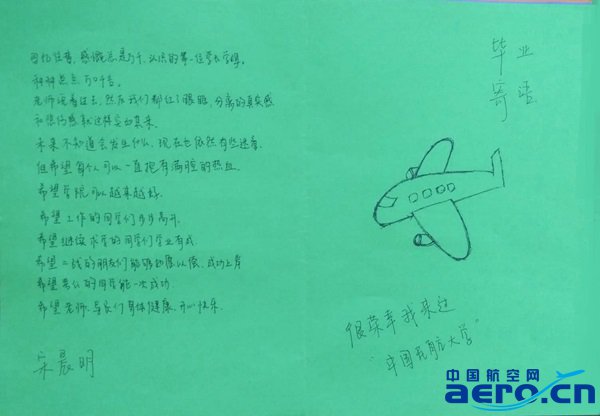 回忆往昔,感慨总是万千,认识的第一位学长学姐.
点点,万
老师说着过去,然后我们都红了眼眶,分离的真实感
和悲伤感就这样突如其来.
未来不知道会发生什么,现在也依然有些迷茫.
但希望每个人可以一直拥有满腔的热血
希望学院可以越来越好.
希望工作的同学们步步高升.
希望继续求学的同学们学业有成.
希望二战的朋友们能够如愿以偿,成功上岸
希望考公的同学能一次成功
希望老师、导员们身体健康,开心快乐.
宋晨明
毕业
寄语
很荣幸我来过
"中国民航大学"
中国航空网
aero.cn